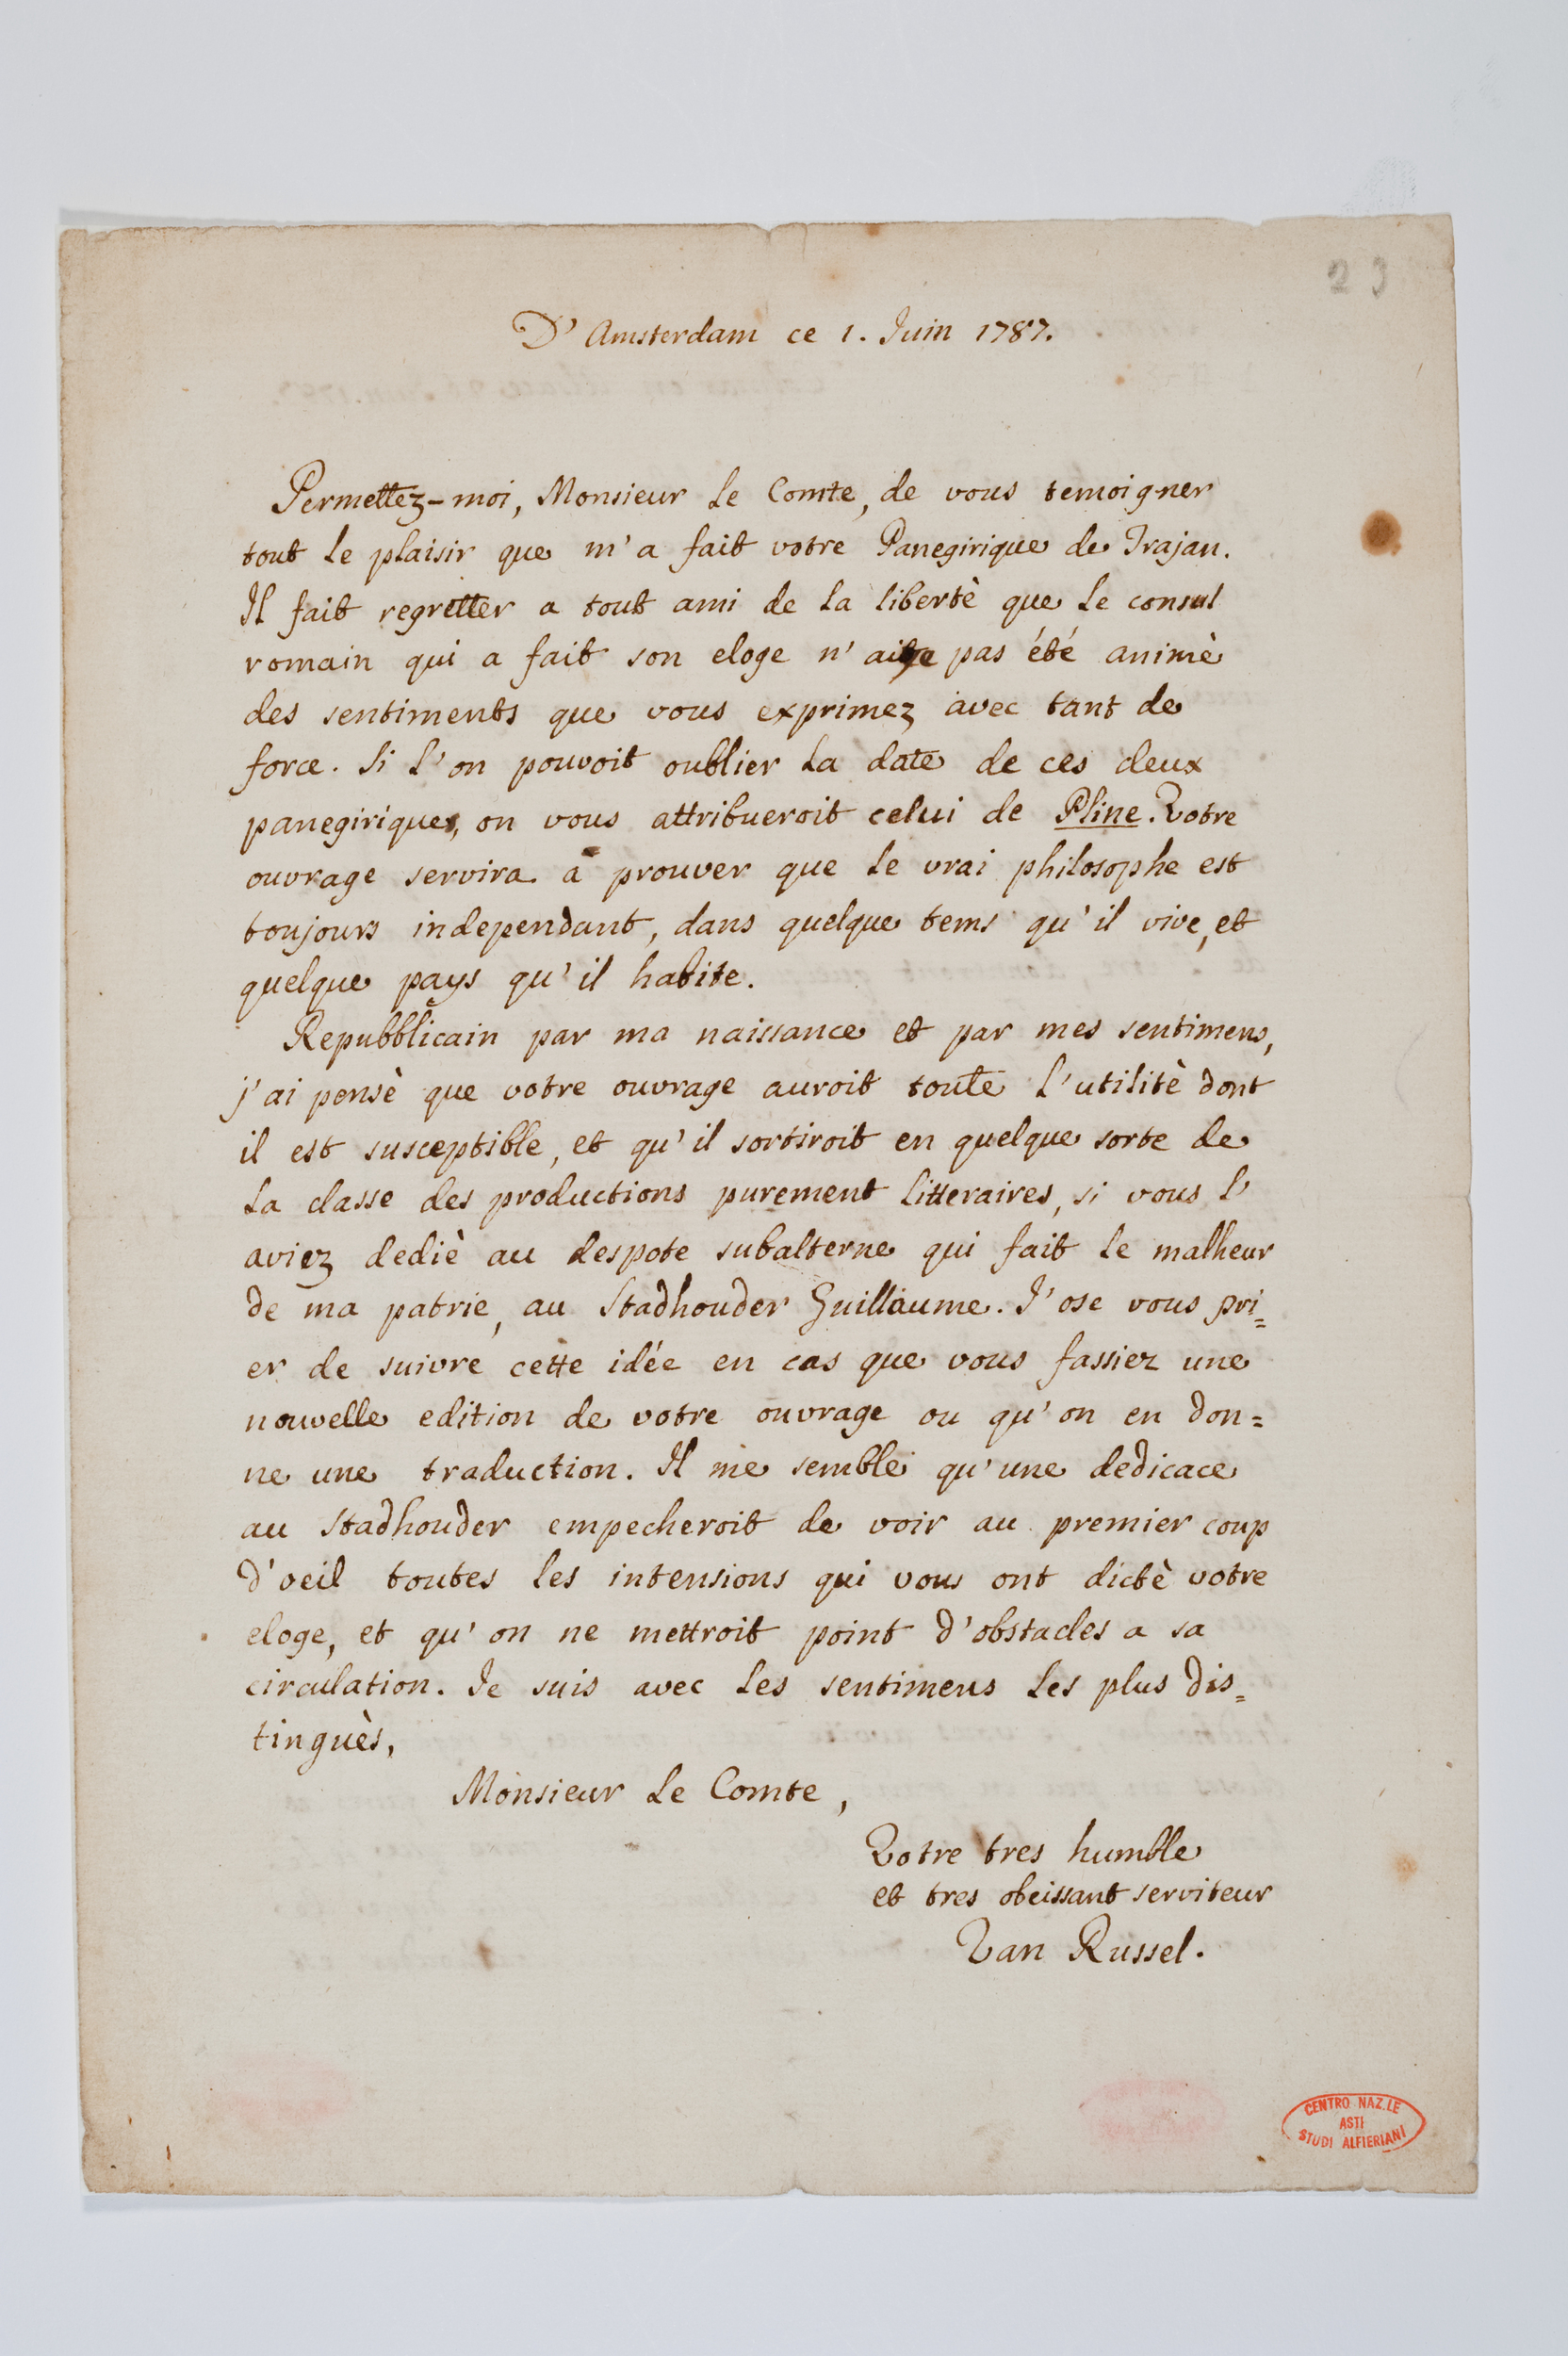 29
D' Amsterdam ce 1. Juin 1787.
Permettez-moi, Monsieur le Comte, de vous temoigner
tout le plaisir que m'a fait votre Panegirique de Trajan.
Il fait regretter a tout ami de la libertè que le consul
romain qui a fait son eloge n'ait pas été animè
des sentiments que vous exprimez avec tant de
force. Si l'on pouvoit oublier la date de ces deux
panegiriques, on vous attribueroit celui de Pline. Votre
ouvrage servira à prouver que le vrai philosophe est
toujours independant, dans quelque tems qu'il vive, et
quelque pays qu'il habite.
Repubblicain par ma naissance et par mes sentimens,
j'ai pensè que votre ouvrage auroit toute l'utilitè dont
il est susceptible, et qu'il sortiroit en quelque sorte de
la classe des productions purement litteraires, si vous l'
aviez dediè au despote subalterne qui fait le malheur
de ma patrie, au Stadhouder Guillaume. J'ose vous pri=
er de suivre cette idée en cas que vous fassiez une
nouvelle edition de votre ouvrage ou qu'on en don=
ne une traduction. Il me semble qu'une dedicace
au Stadhouder empecheroit de voir au premier coup
d'oeil toutes les intensions qui vous ont dictè votre
eloge, et qu'on ne mettroit point d'obstacles a sa
circulation. Je suis avec les sentimens les plus dis=
tinguès,
Monsieur le Comte,
Votre tres humble
et tres obeissant serviteur
Van Russel.
CENTRO NAZ.LE
ASTI
STUDI ALFIERIANI